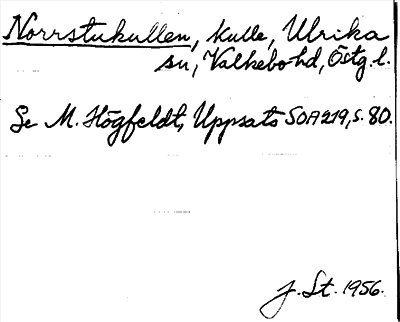 Norrstukullen, kulle, Ulrika
sn, Valkebo hd, Östg. l.
Se M. Högfeldt, Uppsats SOA 219, s. 80.
J. St. 1956.